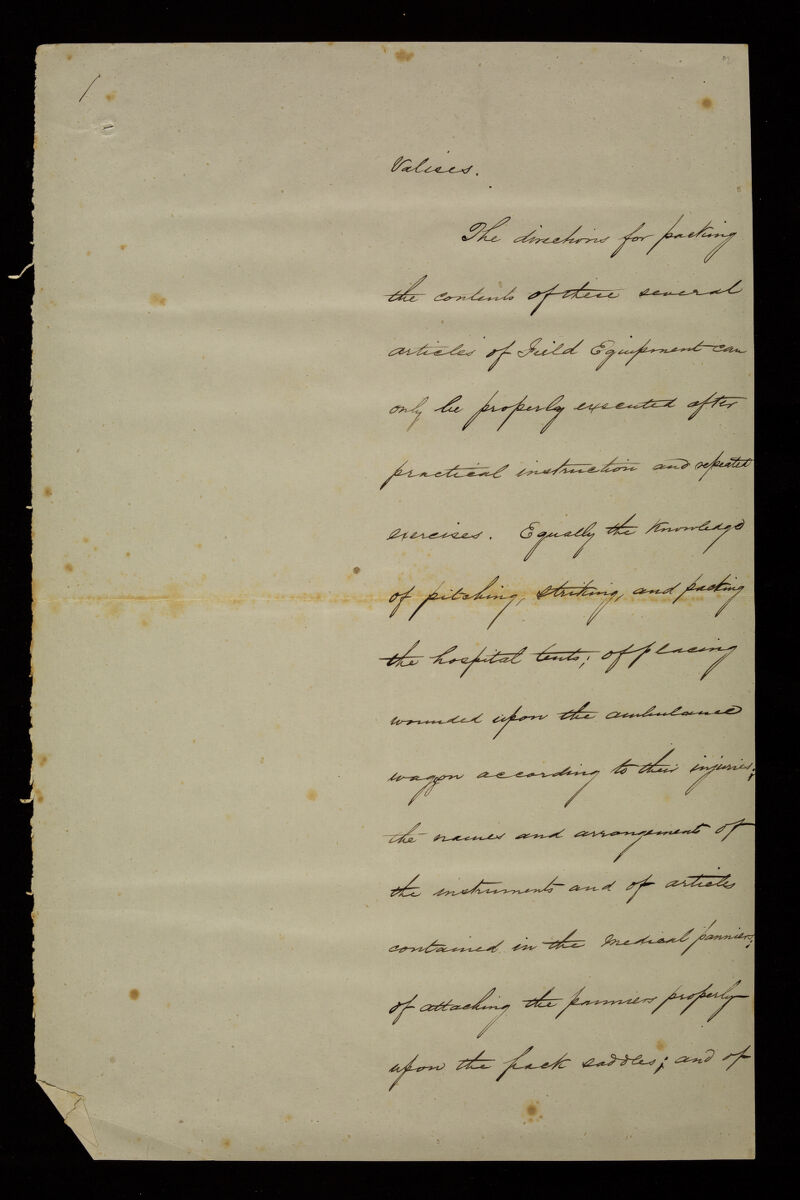 Valises.
The directions for packing
the contents of these several
articles of Field Equipment can
only be properly executed after
practical instruction and repeated
exercises. Equally the Knowledge
of pitching, striking, and packing
the hospital tents; of placing
wounded upon the ambulance
waggon according to their injuries;
the names and arrangements of
the instruments and of articles
contained in the medical panniers;
of attaching the panniers properly
upon the pack saddles; and of